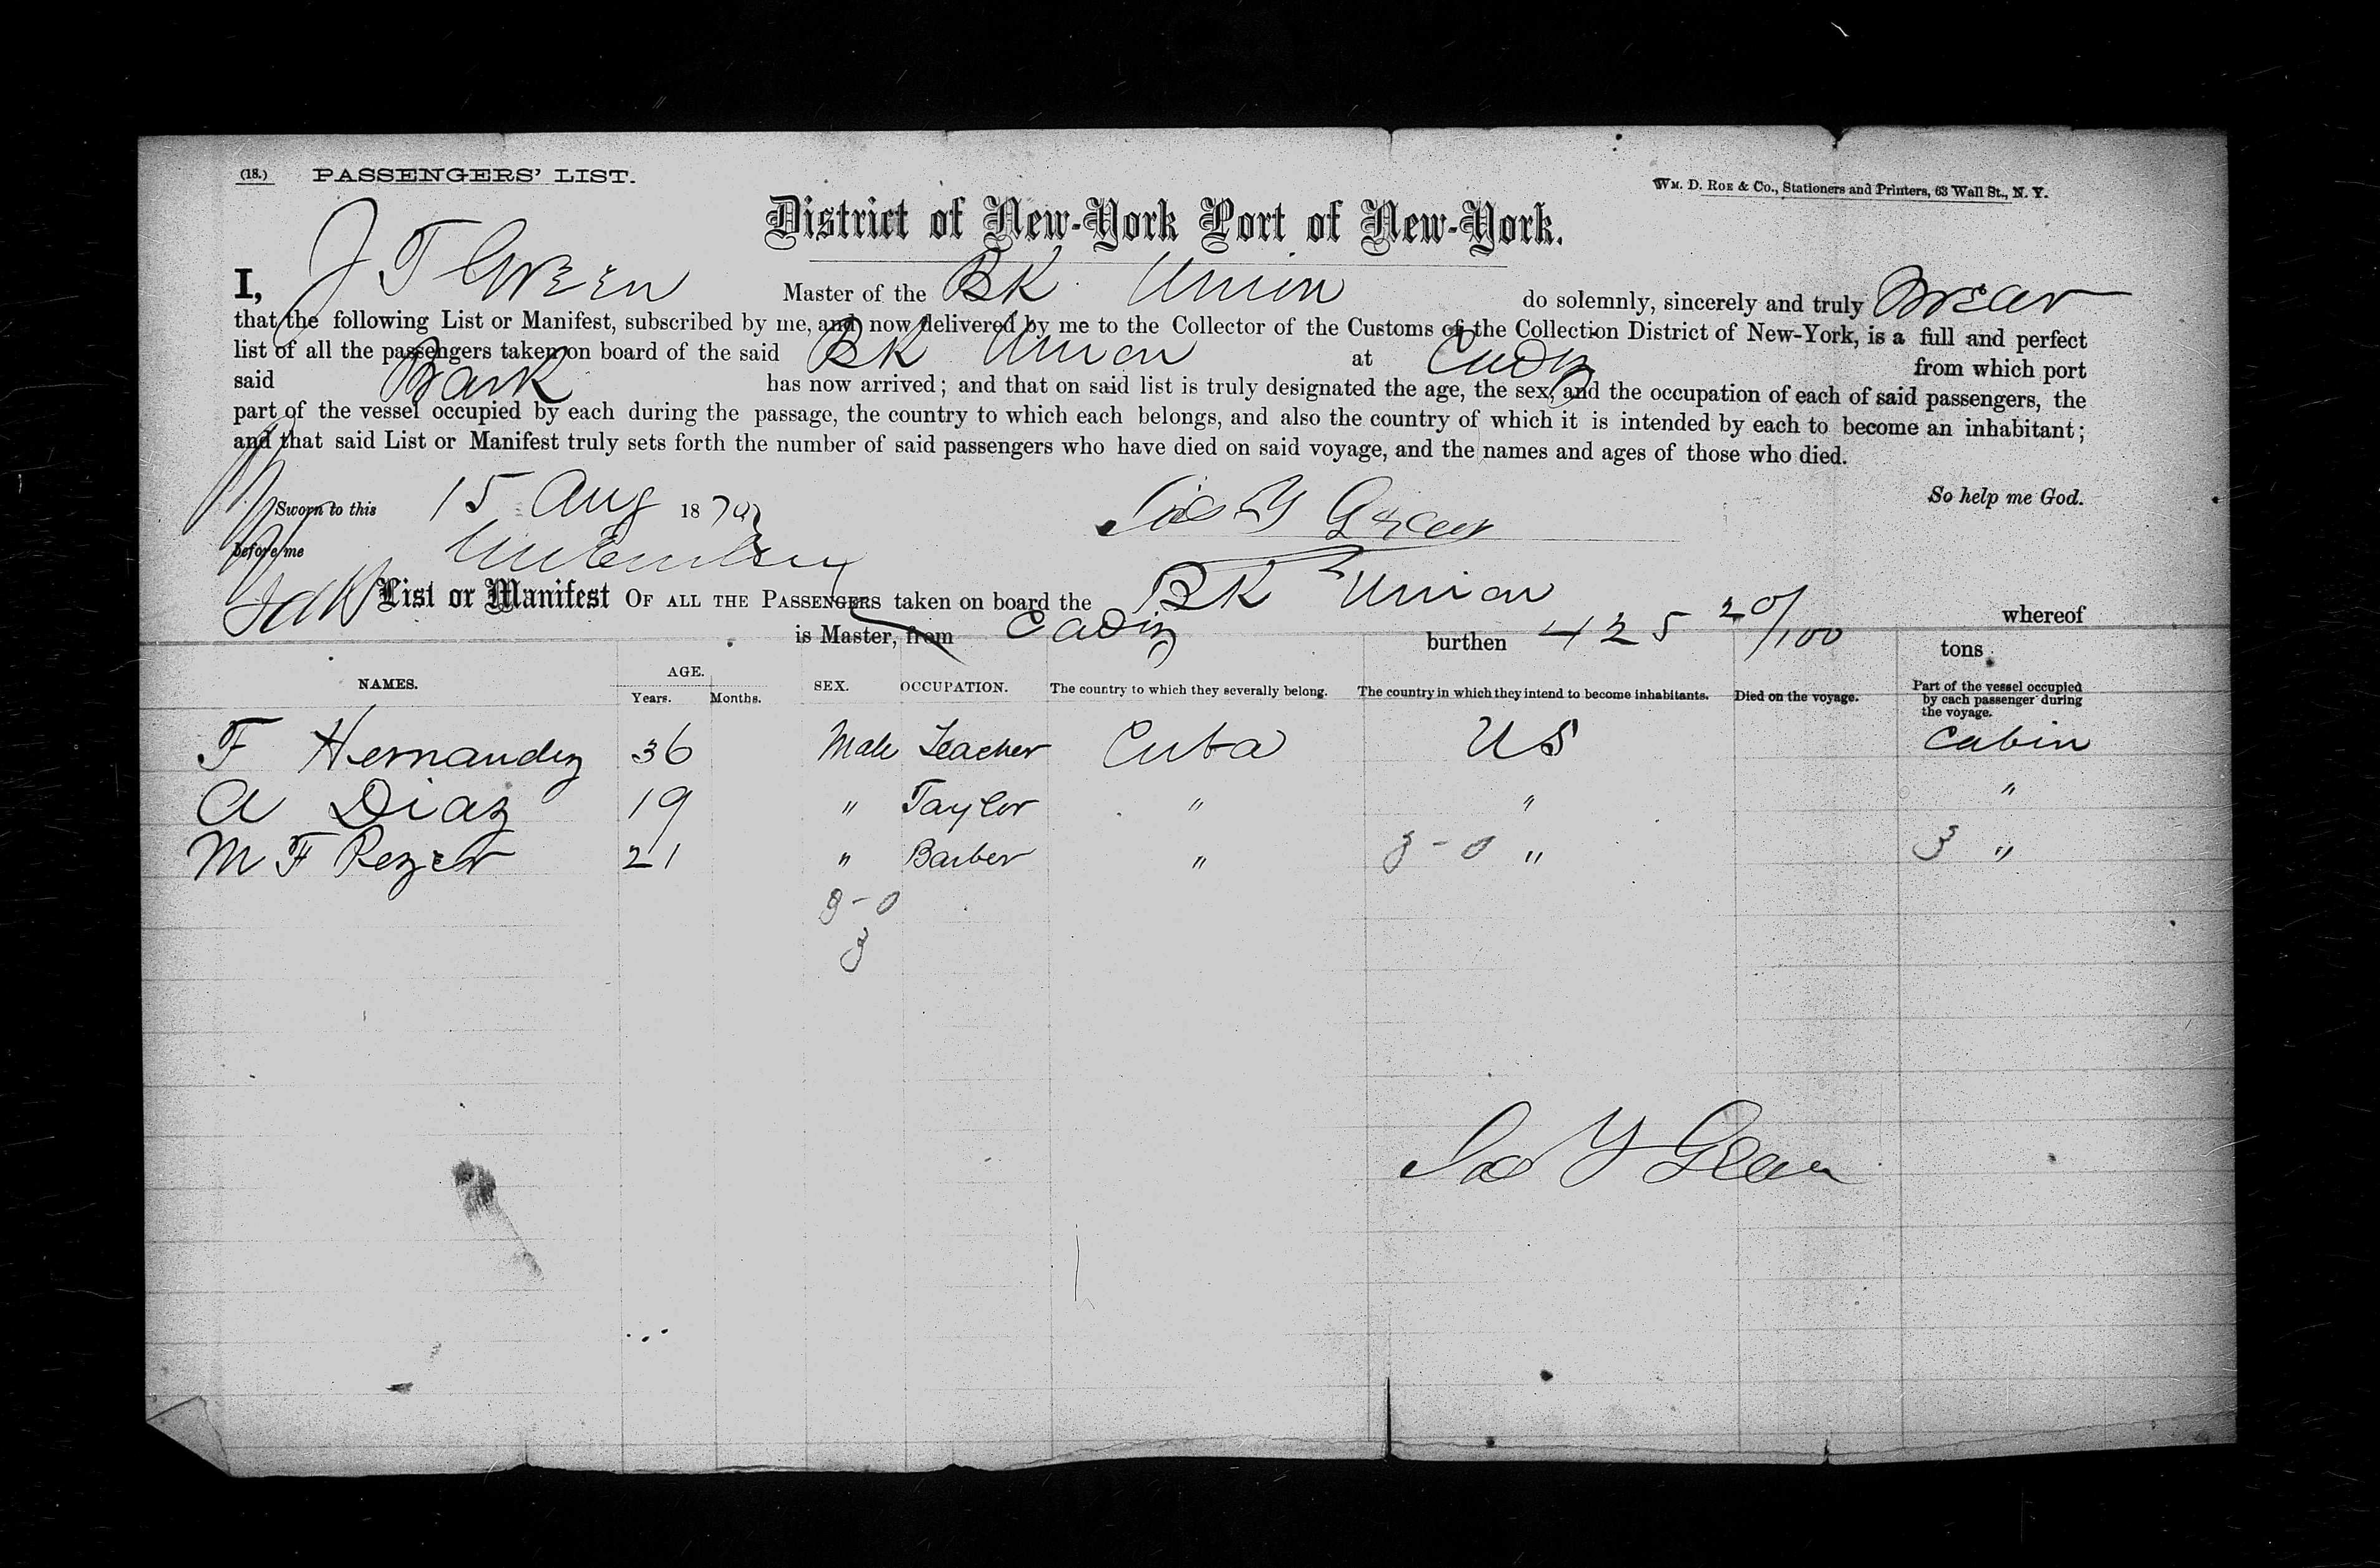 (18.) PASSENGERS' LIST.
WM. D. ROE & CO., Stationers and Printers, 63 Wall St., N. Y.
District of New-York Port of New-York.
I, J T Green Master of the BK Union do solemnly, sincerely and truly swear
that the following List or Manifest, subscribed by me, and now delivered by me to the Collector of the Customs of the Collection District of New-York, is a full and perfect
list of all the passengers taken on board of the said BK Union at Cadiz from which port
said Bark has now arrived; and that on said list is truly designated the age, the sex, and the occupation of each of said passengers, the
part of the vessel occupied by each during the passage, the country to which each belongs, and also the country of which it is intended by each to become an inhabitant;
and that said List or Manifest truly sets forth the number of said passengers who have died on said voyage, and the names and ages of those who died.
So help me God.
Sworn to this 15 Aug 1879
before me
List or Manifest OF ALL THE PASSENGERS taken on board the BK Union whereof
is Master, from Cadiz burthen 425 20/100 tons
NAMES. AGE. Years. Months. SEX. OCCUPATION. The country to which they severally belong. The country in which they intend to become inhabitants. Died on the voyage. Part of the vessel occupied by each passenger during the voyage.
F Hernandez 36 Male Teacher Cuba US Cabin
A Diaz 19 " Taylor " " "
M F Rezer 21 " Barber " 3-0 " 3 "
3-0
3